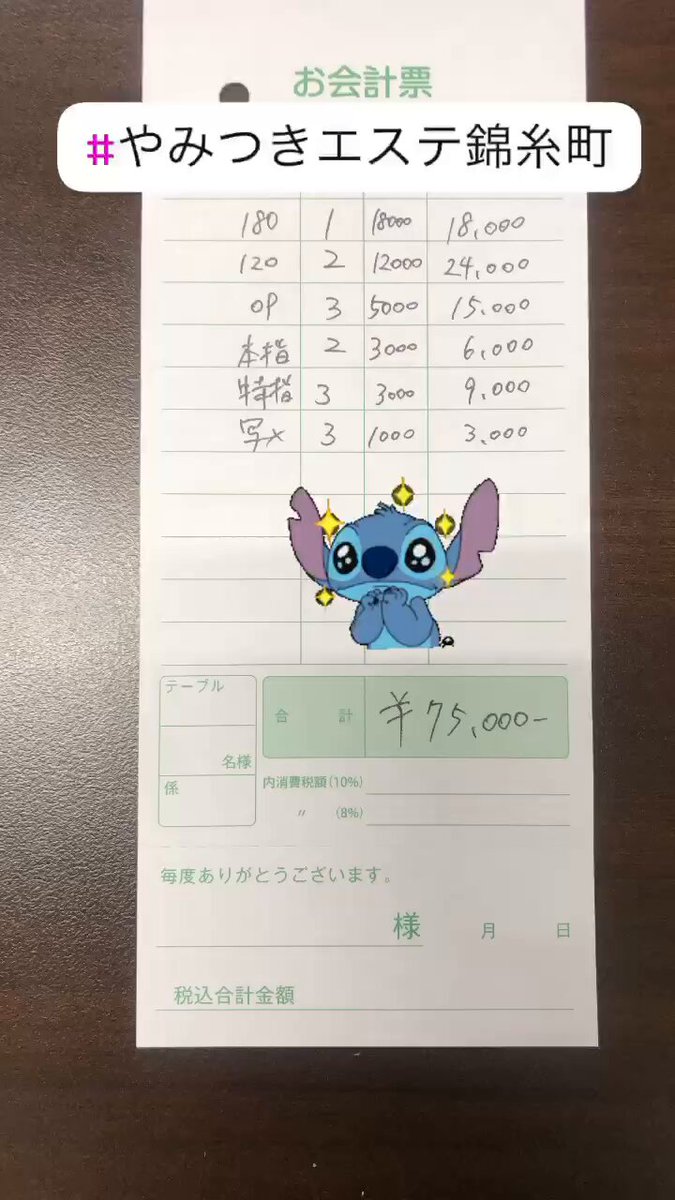 お会計票
#やみつきエステ錦糸町
180 1 18000 18,000
120 2 12000 24,000
OP 3 5000 15,000
本指 2 3000 6,000
特指 3 3000 9,000
写メ 3 1000 3,000
テーブル
名様
係
合計 ¥75,000-
内消費税額(10%)
〃 (8%)
毎度ありがとうございます。
様 月 日
税込合計金額